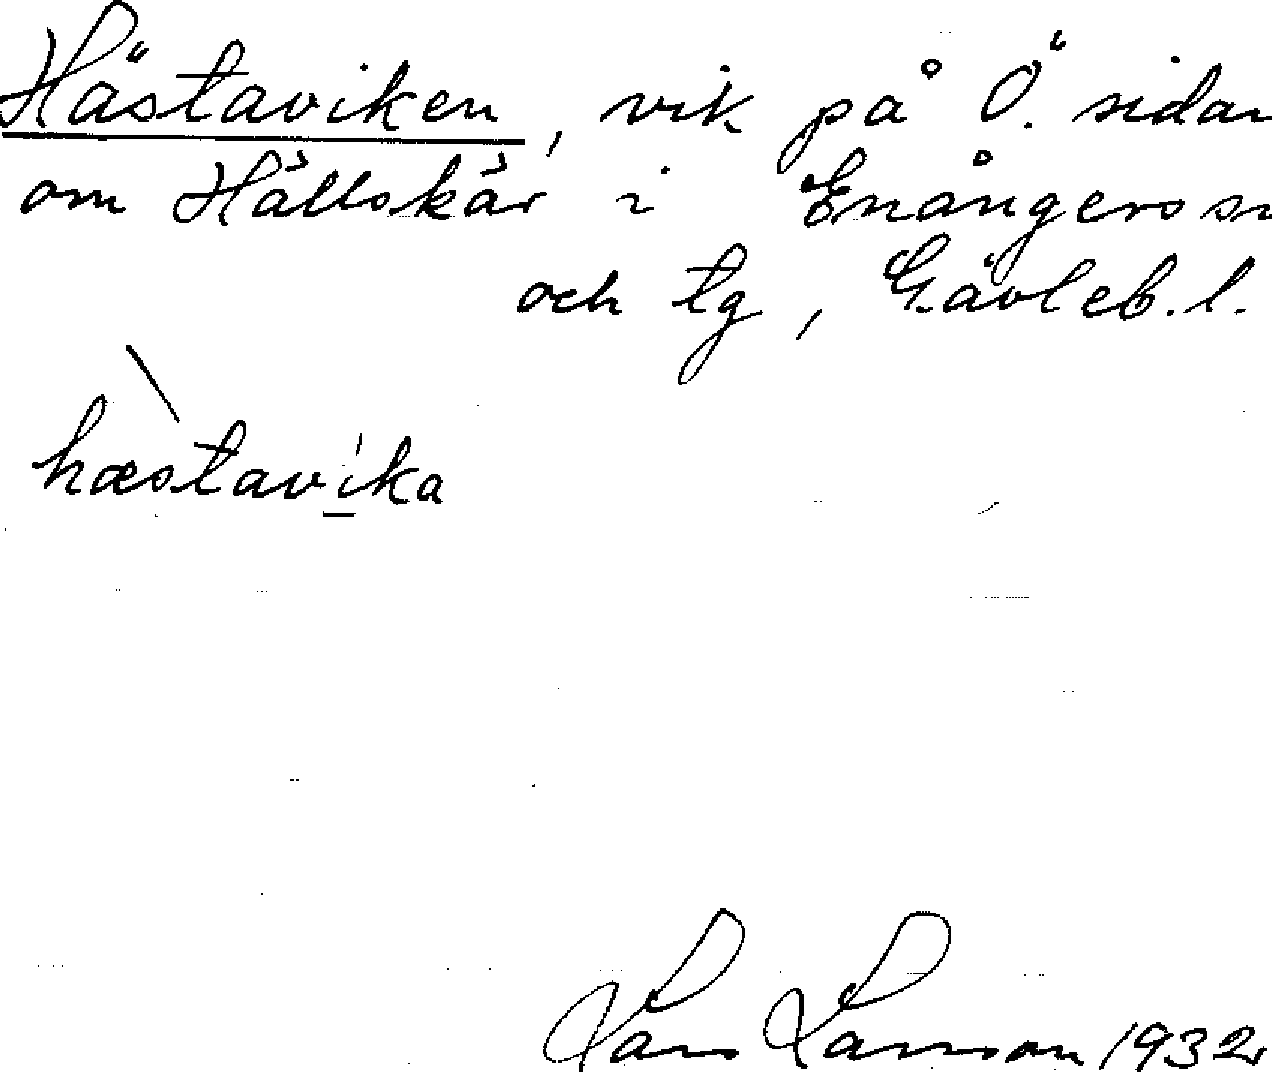 Hästaviken, vik på Ö. sidan
om Hällskär i Enångers sn
och tg, Gävleb. l.
hæstavika
Lars Larsson 1932